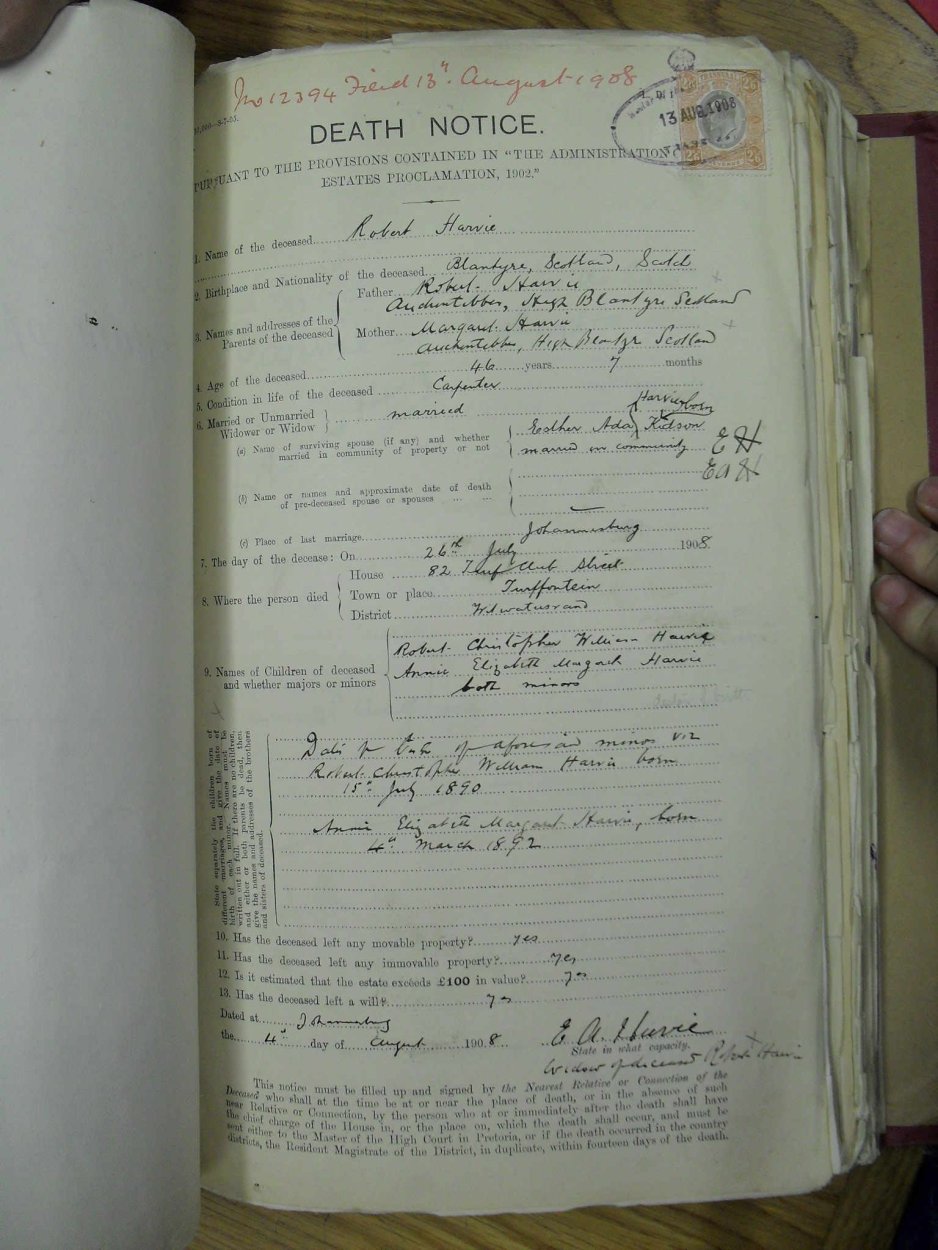 No 12394 Filed 13th August 1908
13 AUG 1908
TRANSVAAL
2/6 2/6
DEATH NOTICE.
PURSUANT TO THE PROVISIONS CONTAINED IN "THE ADMINISTRATION
ESTATES PROCLAMATION, 1902."
1. Name of the deceased Robert Harvie
2. Birthplace and Nationality of the deceased Blantyre, Scotland, Scotch
3. Names and addresses of the Parents of the deceased
Father Robert Harvie
Auchentibber, High Blantyre Scotland
Mother Margaret Harvie
Auchentibber, High Blantyre Scotland
4. Age of the deceased 46 years 7 months
5. Condition in life of the deceased Carpenter
6. Married or Unmarried married
Widower or Widow
(a) Name of surviving spouse (if any) and whether married in community of property or not
Harvie born
Esther Ada Kidson
married in community
E H
E A H
(b) Name or names and approximate date of death
of pre-deceased spouse or spouses
(c) Place of last marriage Johannesburg
7. The day of the decease: On 26th July 1908
8. Where the person died
House 82 Turf Club Street
Town or place Turffontein
District Witwatersrand
9. Names of Children of deceased
and whether majors or minors
Robert Christopher William Harvie
Annie Elizabeth Margaret Harvie
both minors
State separately the children born of
different marriages, and give the date of
birth of each minor. Names must be
written out in full. If there are no children,
and either or both parents be dead, then
give the names and addresses of the brothers
and sisters of deceased.
Date of birth of aforesaid minors viz
Robert Christopher William Harvie born
15th July 1890
Annie Elizabeth Margaret Harvie, born
4th March 1892
10. Has the deceased left any movable property? yes
11. Has the deceased left any immovable property? yes
12. Is it estimated that the estate exceeds £100 in value? yes
13. Has the deceased left a will? yes
Dated at Johannesburg
the 4th day of August 1908
E A Harvie
State in what capacity.
Widow of deceased Robert Harvie
This notice must be filled up and signed by the Nearest Relative or Connection of the
Deceased who shall at the time be at or near the place of death, or in the absence of such
near Relative or Connection, by the person who at or immediately after the death shall have
the chief charge of the House in, or the place on, which the death shall occur, and must be
sent either to the Master of the High Court in Pretoria, or if the death occurred in the country
districts, the Resident Magistrate of the District, in duplicate, within fourteen days of the death.